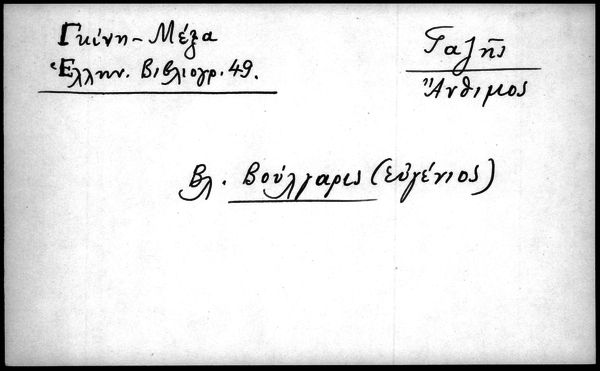 Γκίνη - Μέξα
Ἑλλην. Βιβλιογρ. 49.
Γαζῆς
Ἄνθιμος
βλ. Βούλγαρις (Εὐγένιος)